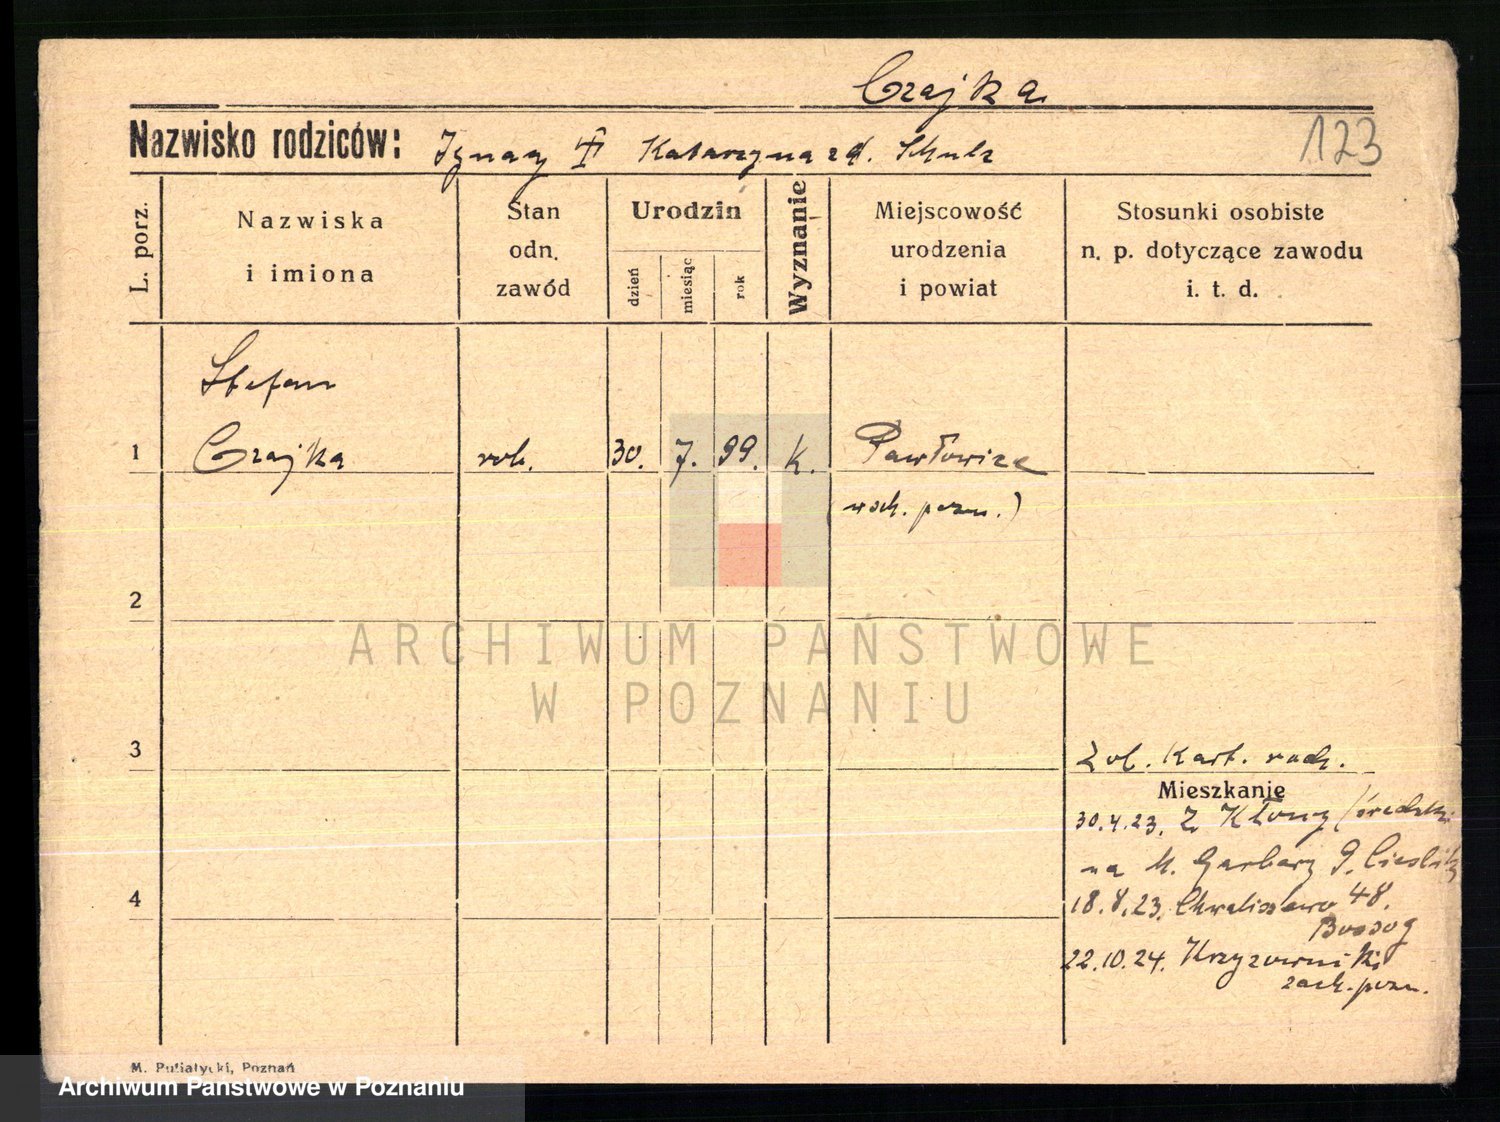 Czajka
Nazwisko rodziców: Ignacy Katarzyna zd. Schulz
123
L. porz.
Nazwiska
i imiona
Stan
odn.
zawód
Urodzin
dzień
miesiąc
rok
Wyznanie
Miejscowość
urodzenia
i powiat
Stosunki osobiste
n. p. dotyczące zawodu
i. t. d.
Stefan
1 Czajka rob. 30. 7. 99. k. Pawłowice
(wsch. pozn.)
2
3
Zob. Kart. rodz.
Mieszkanie
30.4.23. z Kłony (średzki
na M. Garbary 9.
4
18.8.23. Chwaliszewo 48.
22.10.24. Krzyżowniki
zach. pozn.
M. Putiatycki, Poznań
ARCHIWUM PAŃSTWOWE
W POZNANIU
Archiwum Państwowe w Poznaniu